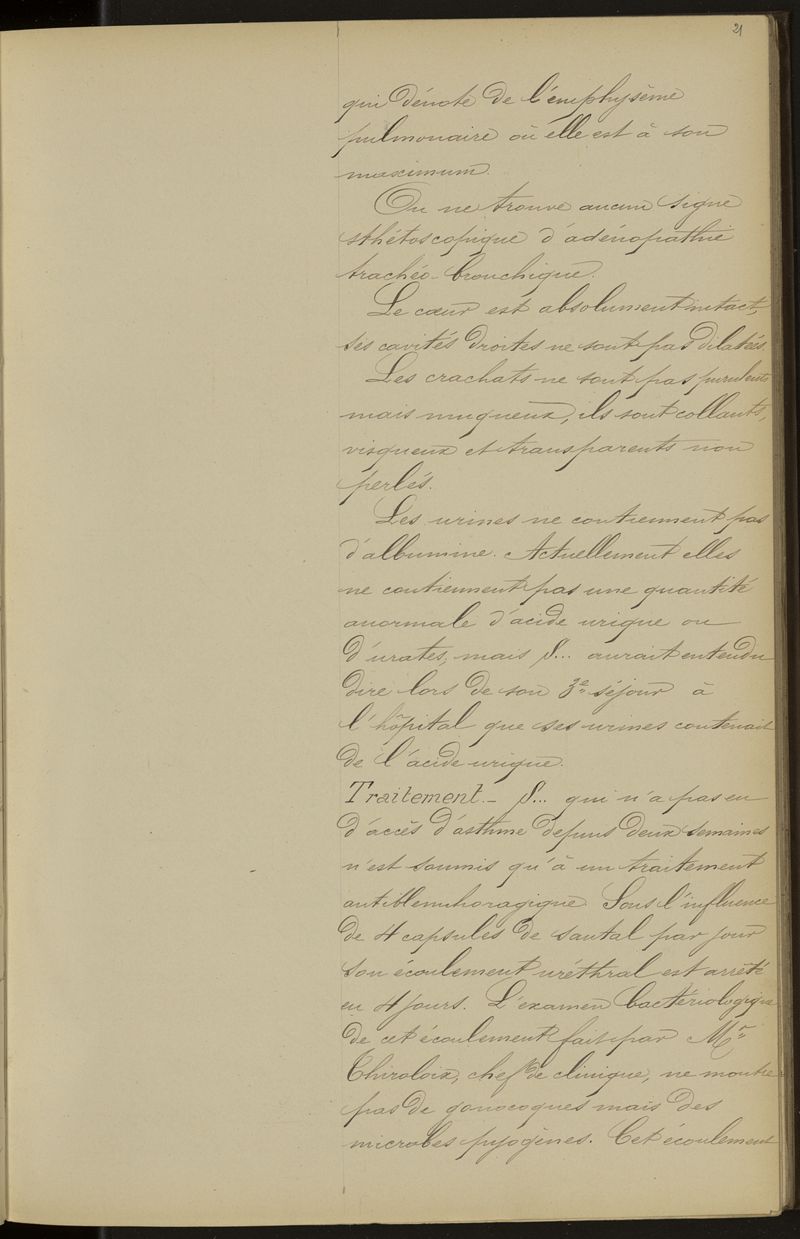 21
qui dénote de l'emphysème
pulmonaire où elle est à son
maximum.
On ne trouve aucun signe
sthétoscopique d'adénopathie
trachéo-bronchique.
Le cœur est absolument intact,
ses cavités droites ne sont pas dilatées.
Les crachats ne sont pas purulents
mais muqueux, ils sont collants,
visqueux et transparents non
perlés.
Les urines ne contiennent pas
d'albumine. Actuellement elles
ne contiennent pas une quantité
anormale d'acide urique ou
d'urates, mais S... aurait entendu
dire lors de son 3e séjour à
l'hôpital que ses urines contenait
de l'acide urique.
Traitement.- S... qui n'a pas eu
d'accès d'asthme depuis deux semaines
n'est soumis qu'à un traitement
antiblennhoragique. Sous l'influence
de 4 capsules de santal par jour
son écoulement uréthral est arrêté
en 4 jours. L'examen bactériologique
de cet écoulement fait par Mr
Thiroloix, chef de clinique, ne montre
pas de gonocoques mais des
microbes pyogènes. Cet écoulement